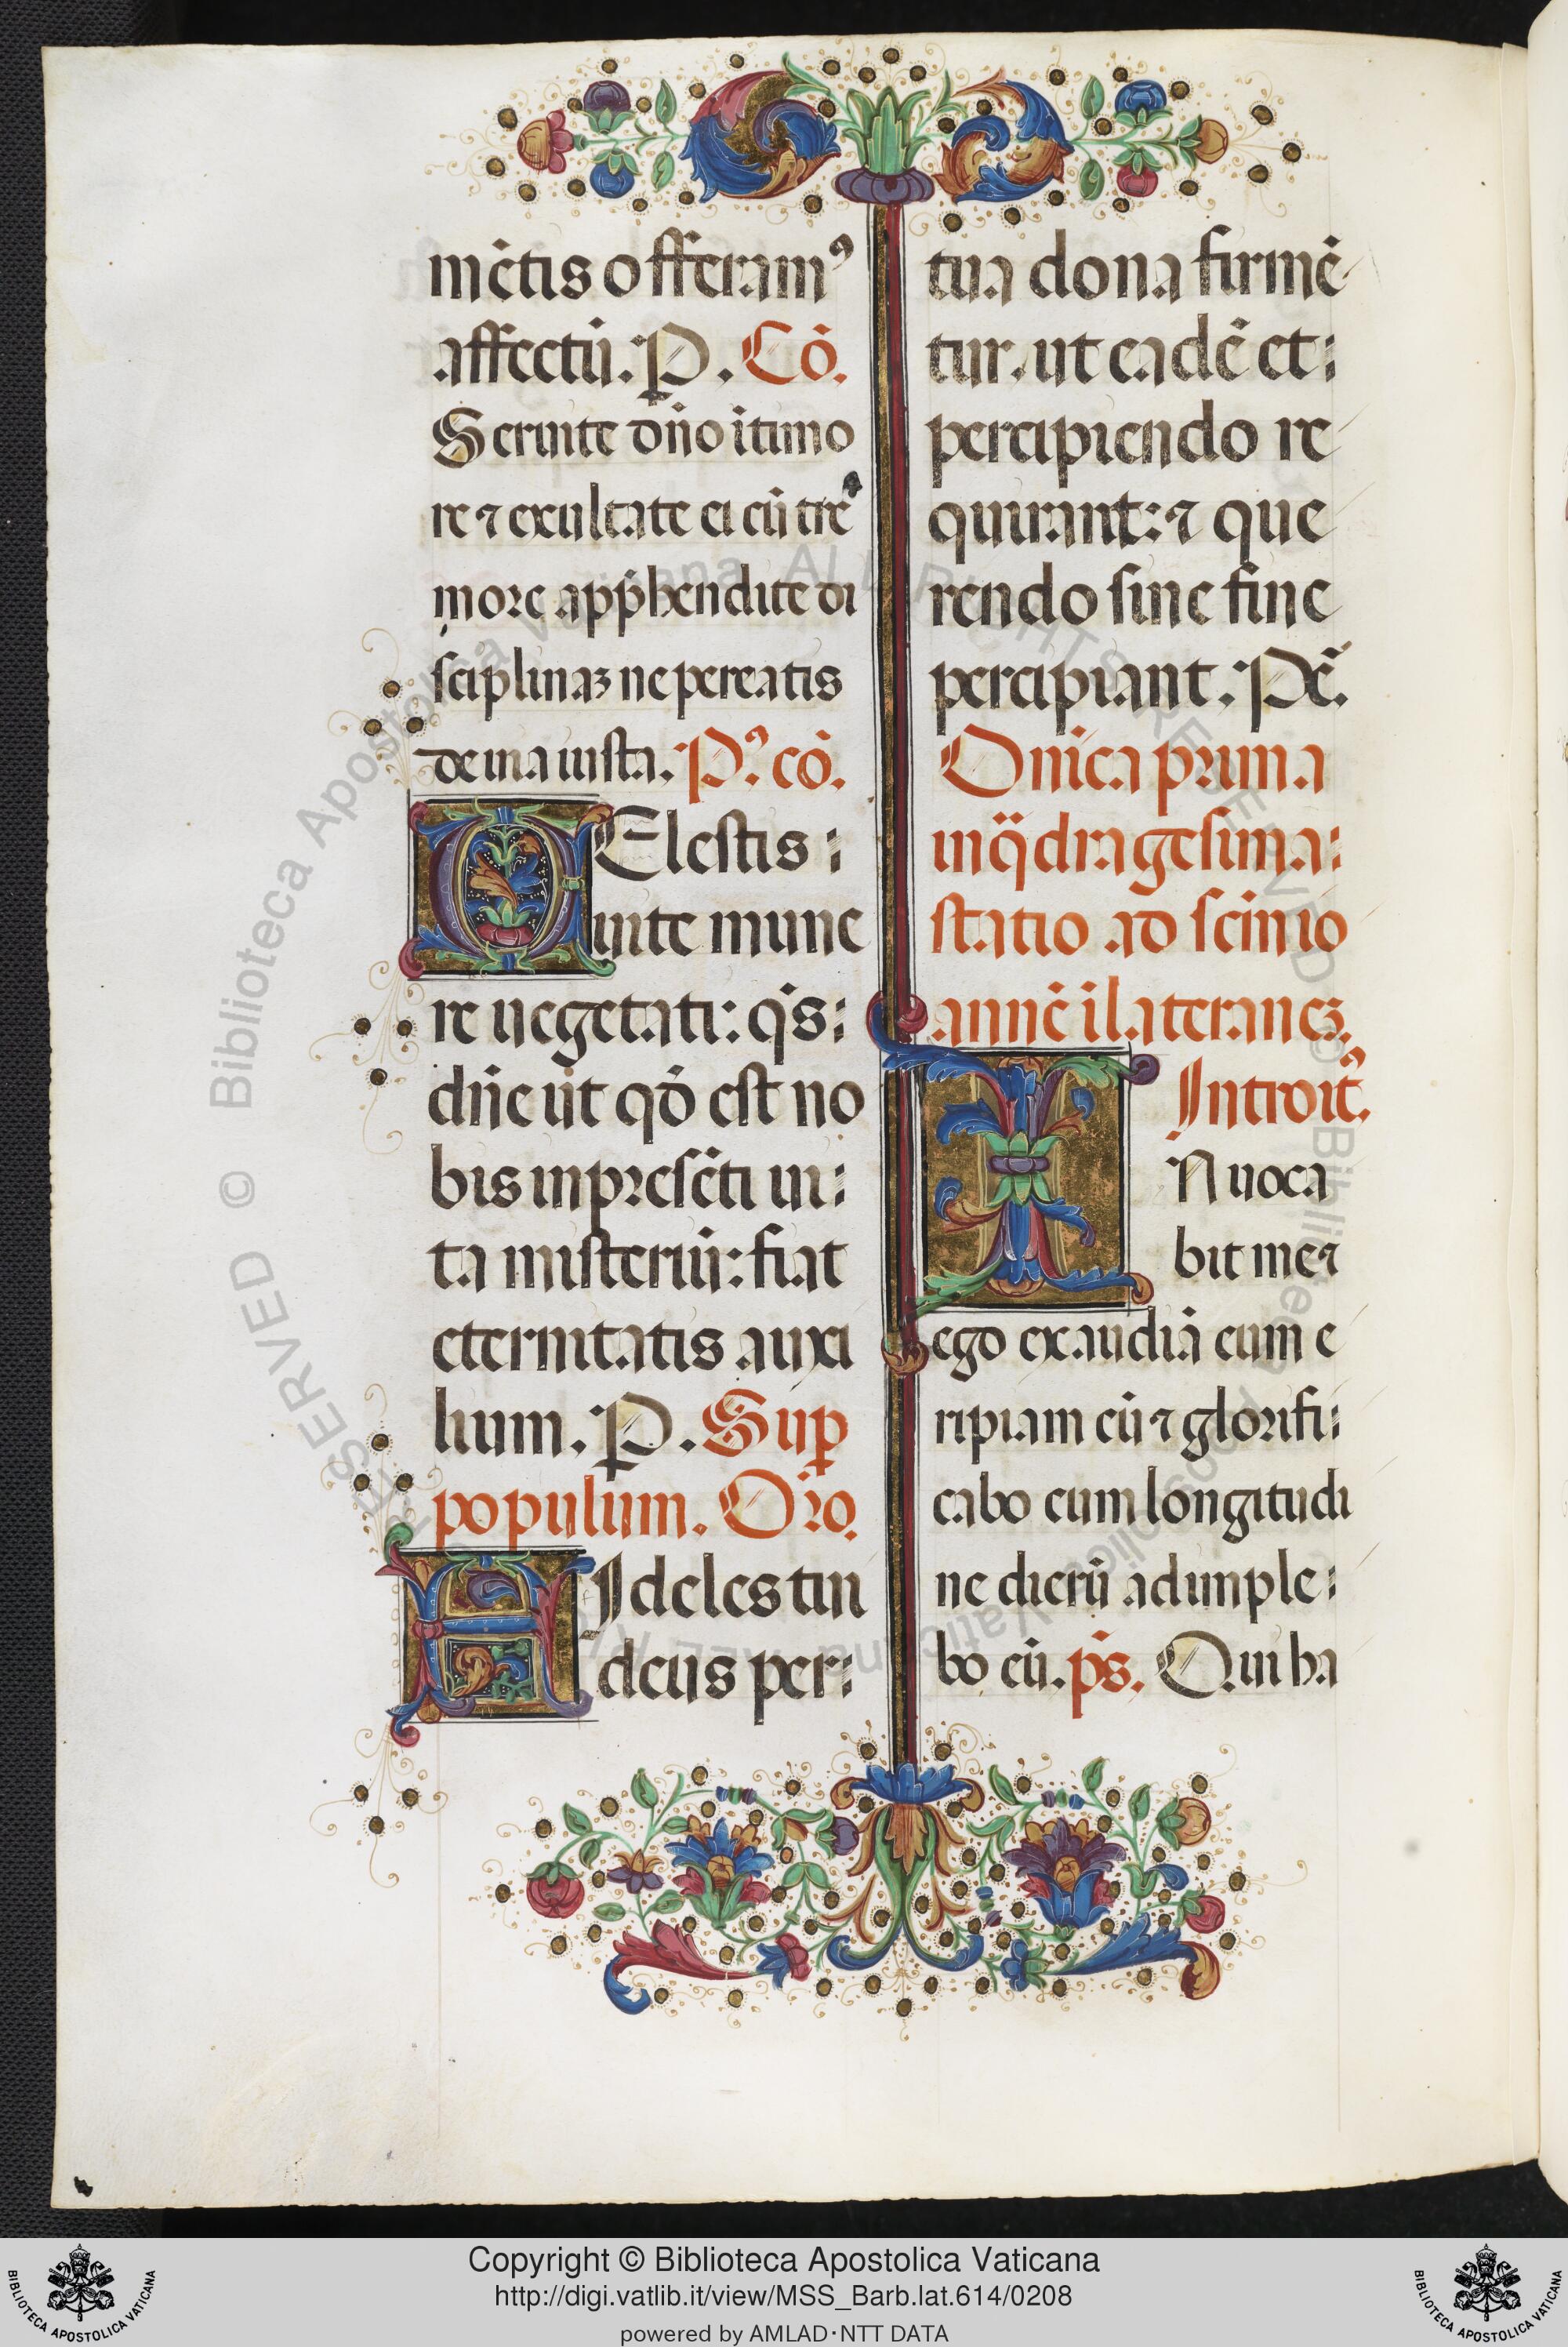 mētis offeram⁹
affectū. P. Cō.
Seruite dn̄o ī timo
re ⁊ exultate ei cū tre
more app̄hendite di
sciplinaꝫ ne pereatis
de uia iusta. P⁹. cō.
CElestis
uite mune
re uegetati: qs̄
dn̄e ut qđ est no
bis in presēti ui
ta misteriū: fiat
eternitatis auxi
lium. P. Suꝑ
populum. Oro.
FIdeles tui
deus per
tua dona firmē
tur. ut eadē et
percipiendo re
quirant: ⁊ que
rendo sine fine
percipiant. Pē.
Dnica prima
in q̈dragesima
statio ad scm io
annē ī lateraneꝫ.
Introit⁹.
INuoca
bit me ⁊
ego exaudiā eum e
ripiam eū ⁊ glorifi
cabo eum longitudi
ne dierū adimple
bo eū. ps̄. Qui ha
© Biblioteca Apostolica Vaticana ALL RIGHTS RESERVED
© Biblioteca Apostolica Vaticana ALL RIGHTS RESERVED
Copyright © Biblioteca Apostolica Vaticana
http://digi.vatlib.it/view/MSS_Barb.lat.614/0208
powered by AMLAD·NTT DATA
BIBLIOTECA APOSTOLICA VATICANA
BIBLIOTECA APOSTOLICA VATICANA